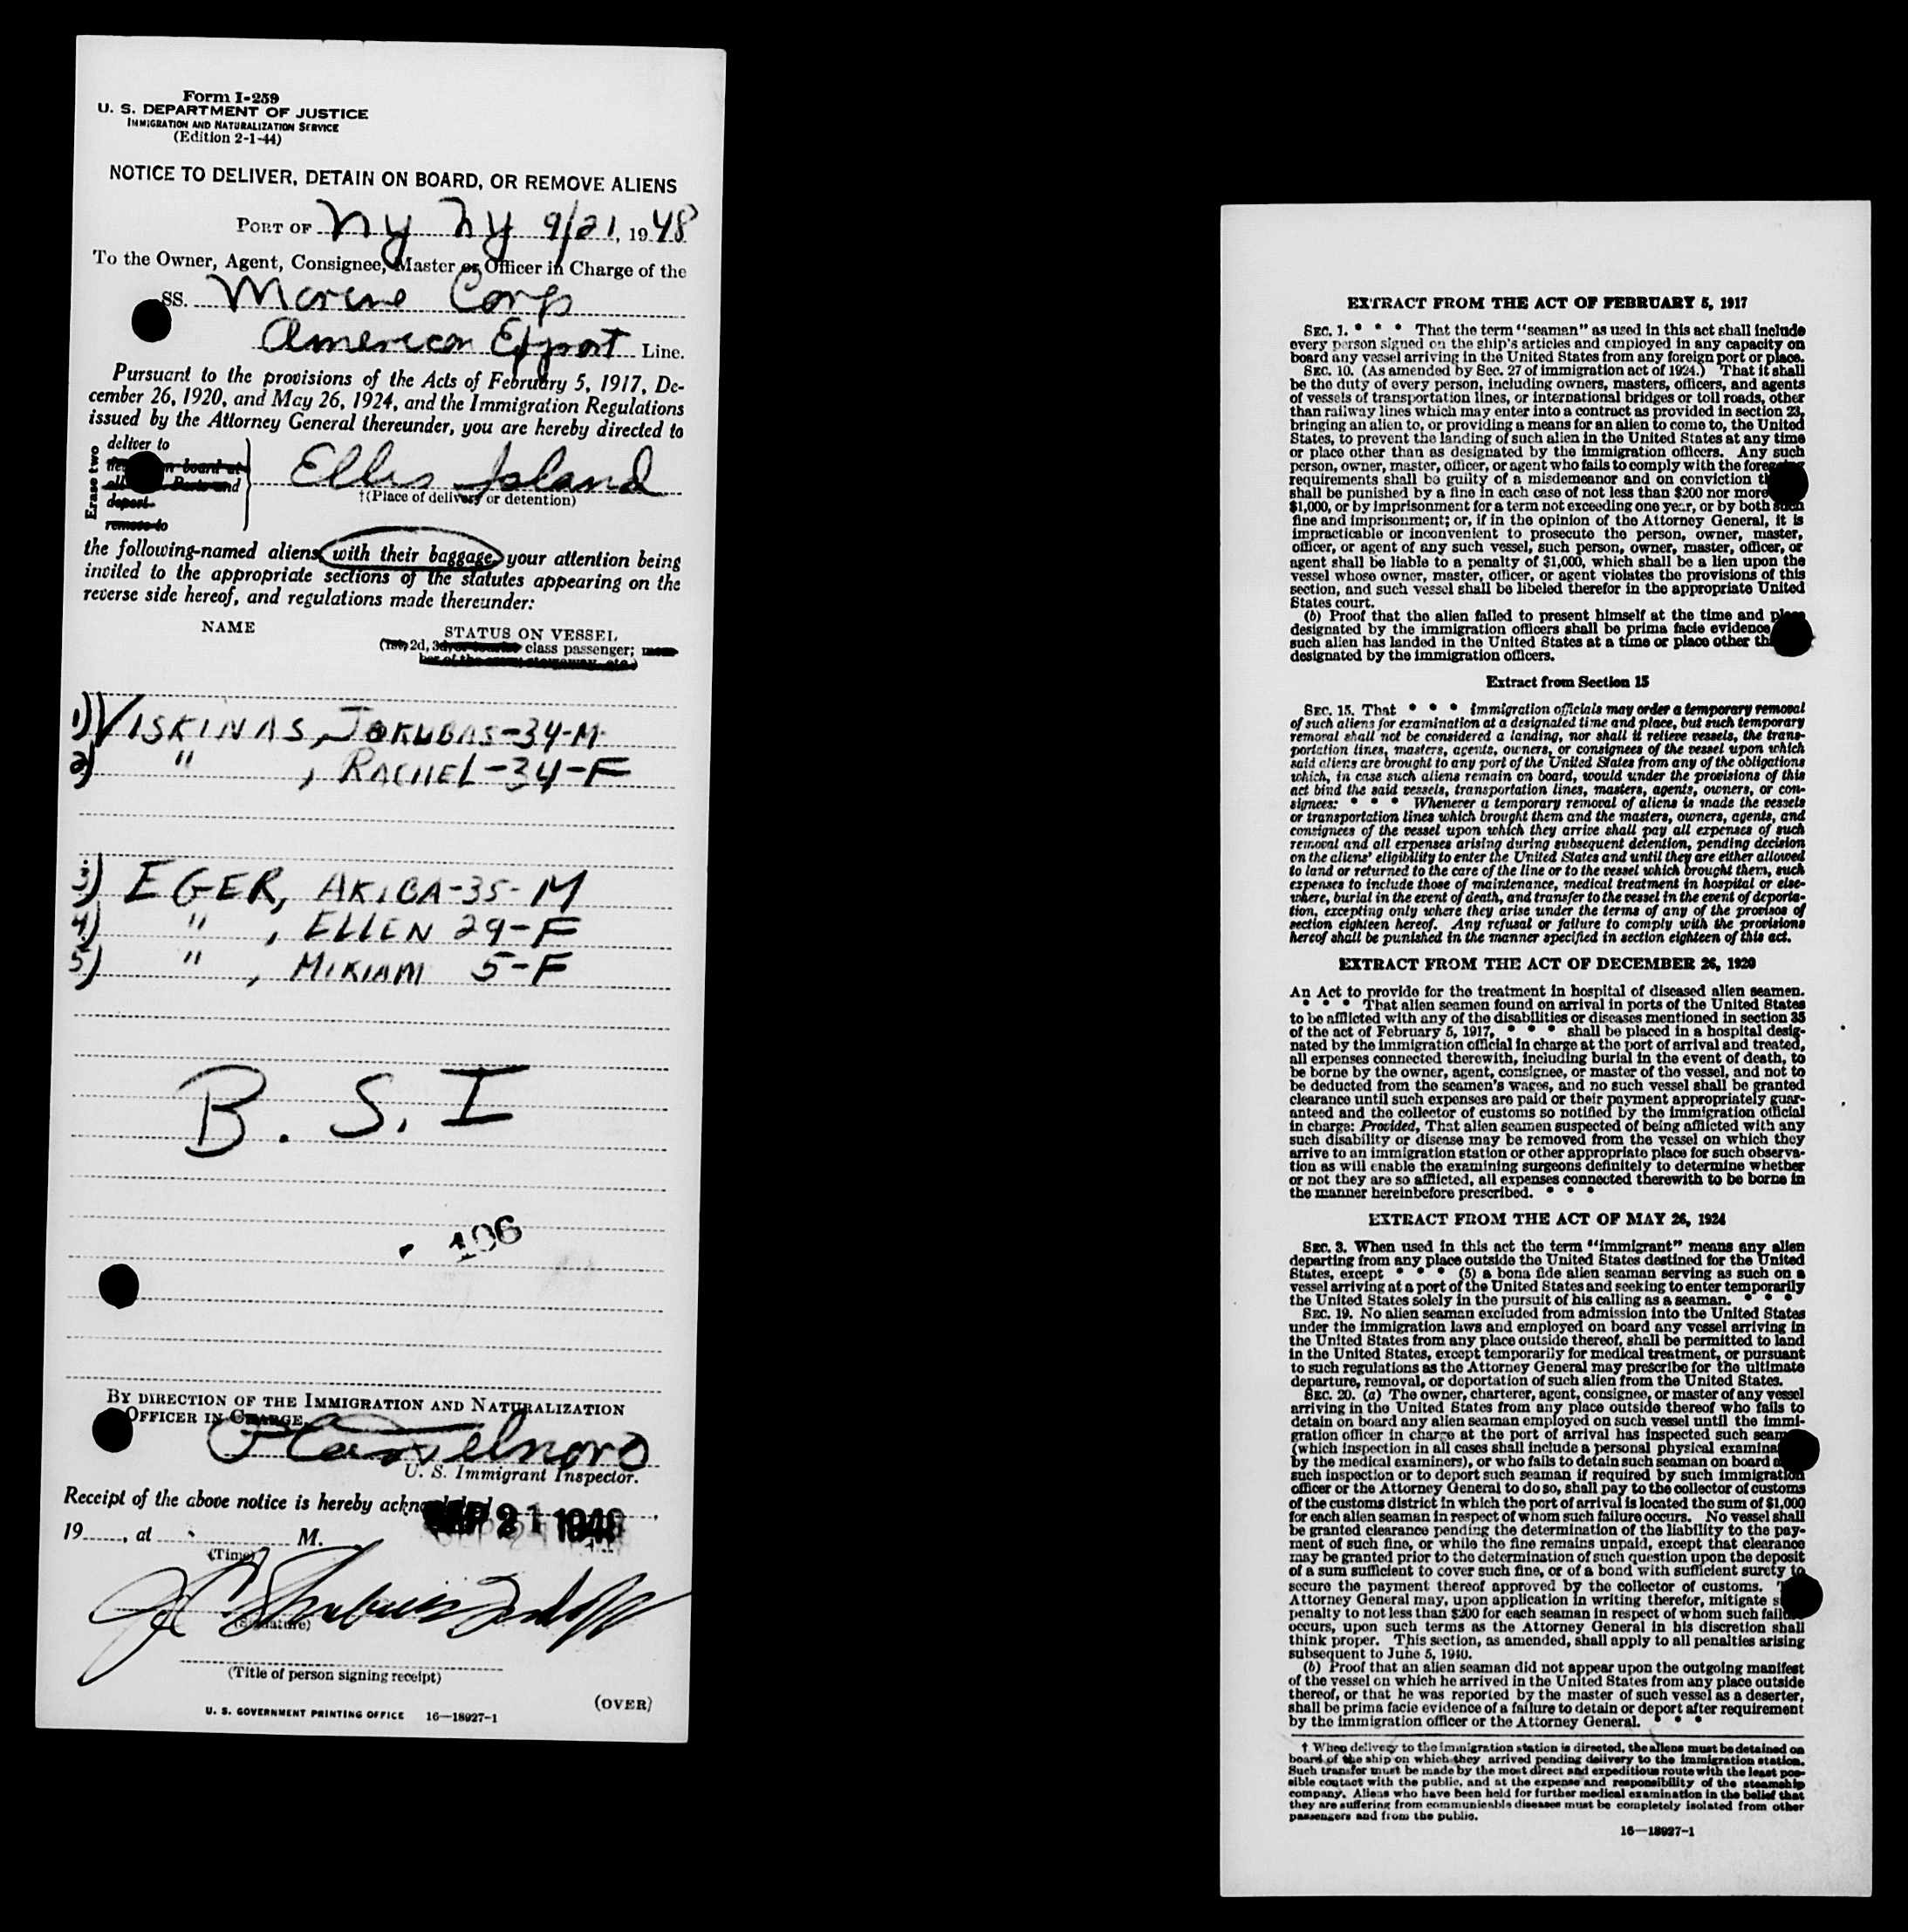 Form I-259
U. S. DEPARTMENT OF JUSTICE
IMMIGRATION AND NATURALIZATION SERVICE
(Edition 2-1-44)
NOTICE TO DELIVER, DETAIN ON BOARD, OR REMOVE ALIENS
PORT OF Ny Ny 9/21, 1948
To the Owner, Agent, Consignee, Master or Officer in Charge of the
SS. Marine Corp
American Export Line.
Pursuant to the provisions of the Acts of February 5, 1917, De-
cember 26, 1920, and May 26, 1924, and the Immigration Regulations
issued by the Attorney General thereunder, you are hereby directed to
Erase two
deliver to
n board at
Ellis Island
deport
remove to
†(Place of delivery or detention)
the following-named aliens with their baggage, your attention being
invited to the appropriate sections of the statutes appearing on the
reverse side hereof, and regulations made thereunder:
NAME STATUS ON VESSEL
(1st, 2d, 3d, or tourist class passenger; mem-
ber of the crew, stowaway, etc.)
1) VISKINAS, JOKUBAS-34-M
2) " , RACHEL-34-F
3) EGER, AKIBA-35-M
4) " , ELLEN 29-F
5) " , MIRIAM 5-F
B. S. I
106
BY DIRECTION OF THE IMMIGRATION AND NATURALIZATION
OFFICER IN CHARGE.
U. S. Immigrant Inspector.
Receipt of the above notice is hereby
SEP 21 1948
19......, at M.
(Time)
(Signature)
(Title of person signing receipt)
(OVER)
U. S. GOVERNMENT PRINTING OFFICE 16—18927-1
EXTRACT FROM THE ACT OF FEBRUARY 5, 1917
SEC. 1. * * * That the term "seaman" as used in this act shall include
every person signed on the ship's articles and employed in any capacity on
board any vessel arriving in the United States from any foreign port or place.
SEC. 10. (As amended by Sec. 27 of immigration act of 1924.) That it shall
be the duty of every person, including owners, masters, officers, and agents
of vessels of transportation lines, or international bridges or toll roads, other
than railway lines which may enter into a contract as provided in section 23,
bringing an alien to, or providing a means for an alien to come to, the United
States, to prevent the landing of such alien in the United States at any time
or place other than as designated by the immigration officers. Any such
person, owner, master, officer, or agent who fails to comply with the foregoing
requirements shall be guilty of a misdemeanor and on conviction
shall be punished by a fine in each case of not less than $200 nor more
$1,000, or by imprisonment for a term not exceeding one year, or by both such
fine and imprisonment; or, if in the opinion of the Attorney General, it is
impracticable or inconvenient to prosecute the person, owner, master,
officer, or agent of any such vessel, such person, owner, master, officer, or
agent shall be liable to a penalty of $1,000, which shall be a lien upon the
vessel whose owner, master, officer, or agent violates the provisions of this
section, and such vessel shall be libeled therefor in the appropriate United
States court.
(b) Proof that the alien failed to present himself at the time and place
designated by the immigration officers shall be prima facie evidence
such alien has landed in the United States at a time or place other
designated by the immigration officers.
Extract from Section 15
SEC. 15. That * * * immigration officials may order a temporary removal
of such aliens for examination at a designated time and place, but such temporary
removal shall not be considered a landing, nor shall it relieve vessels, the trans-
portation lines, masters, agents, owners, or consignees of the vessel upon which
said aliens are brought to any port of the United States from any of the obligations
which, in case such aliens remain on board, would under the provisions of this
act bind the said vessels, transportation lines, masters, agents, owners, or con-
signees: * * * Whenever a temporary removal of aliens is made the vessels
or transportation lines which brought them and the masters, owners, agents, and
consignees of the vessel upon which they arrive shall pay all expenses of such
removal and all expenses arising during subsequent detention, pending decision
on the aliens' eligibility to enter the United States and until they are either allowed
to land or returned to the care of the line or to the vessel which brought them, such
expenses to include those of maintenance, medical treatment in hospital or else-
where, burial in the event of death, and transfer to the vessel in the event of deporta-
tion, excepting only where they arise under the terms of any of the provisos of
section eighteen hereof. Any refusal or failure to comply with the provisions
hereof shall be punished in the manner specified in section eighteen of this act.
EXTRACT FROM THE ACT OF DECEMBER 26, 1920
An Act to provide for the treatment in hospital of diseased alien seamen.
* * * That alien seamen found on arrival in ports of the United States
to be afflicted with any of the disabilities or diseases mentioned in section 35
of the act of February 5, 1917, * * * shall be placed in a hospital desig-
nated by the immigration official in charge at the port of arrival and treated,
all expenses connected therewith, including burial in the event of death, to
be borne by the owner, agent, consignee, or master of the vessel, and not to
be deducted from the seamen's wages, and no such vessel shall be granted
clearance until such expenses are paid or their payment appropriately guar-
anteed and the collector of customs so notified by the immigration official
in charge: Provided, That alien seamen suspected of being afflicted with any
such disability or disease may be removed from the vessel on which they
arrive to an immigration station or other appropriate place for such observa-
tion as will enable the examining surgeons definitely to determine whether
or not they are so afflicted, all expenses connected therewith to be borne in
the manner hereinbefore prescribed. * * *
EXTRACT FROM THE ACT OF MAY 26, 1924
SEC. 3. When used in this act the term "immigrant" means any alien
departing from any place outside the United States destined for the United
States, except * * * (5) a bona fide alien seaman serving as such on a
vessel arriving at a port of the United States and seeking to enter temporarily
the United States solely in the pursuit of his calling as a seaman. * * *
SEC. 19. No alien seaman excluded from admission into the United States
under the immigration laws and employed on board any vessel arriving in
the United States from any place outside thereof, shall be permitted to land
in the United States, except temporarily for medical treatment, or pursuant
to such regulations as the Attorney General may prescribe for the ultimate
departure, removal, or deportation of such alien from the United States.
SEC. 20. (a) The owner, charterer, agent, consignee, or master of any vessel
arriving in the United States from any place outside thereof who fails to
detain on board any alien seaman employed on such vessel until the immi-
gration officer in charge at the port of arrival has inspected such
(which inspection in all cases shall include a personal physical
by the medical examiners), or who fails to detain such seaman on board
such inspection or to deport such seaman if required by such immigration
officer or the Attorney General to do so, shall pay to the collector of customs
of the customs district in which the port of arrival is located the sum of $1,000
for each alien seaman in respect of whom such failure occurs. No vessel shall
be granted clearance pending the determination of the liability to the pay-
ment of such fine, or while the fine remains unpaid, except that clearance
may be granted prior to the determination of such question upon the deposit
of a sum sufficient to cover such fine, or of a bond with sufficient surety to
secure the payment thereof approved by the collector of customs.
Attorney General may, upon application in writing therefor, mitigate
penalty to not less than $200 for each seaman in respect of whom such failure
occurs, upon such terms as the Attorney General in his discretion shall
think proper. This section, as amended, shall apply to all penalties arising
subsequent to June 5, 1940.
(b) Proof that an alien seaman did not appear upon the outgoing manifest
of the vessel on which he arrived in the United States from any place outside
thereof, or that he was reported by the master of such vessel as a deserter,
shall be prima facie evidence of a failure to detain or deport after requirement
by the immigration officer or the Attorney General. * * *
† When delivery to the immigration station is directed, the aliens must be detained on
board of the ship on which they arrived pending delivery to the immigration station.
Such transfer must be made by the most direct and expeditious route with the least pos-
sible contact with the public, and at the expense and responsibility of the steamship
company. Aliens who have been held for further medical examination in the belief that
they are suffering from communicable diseases must be completely isolated from other
passengers and from the public.
16—18927-1